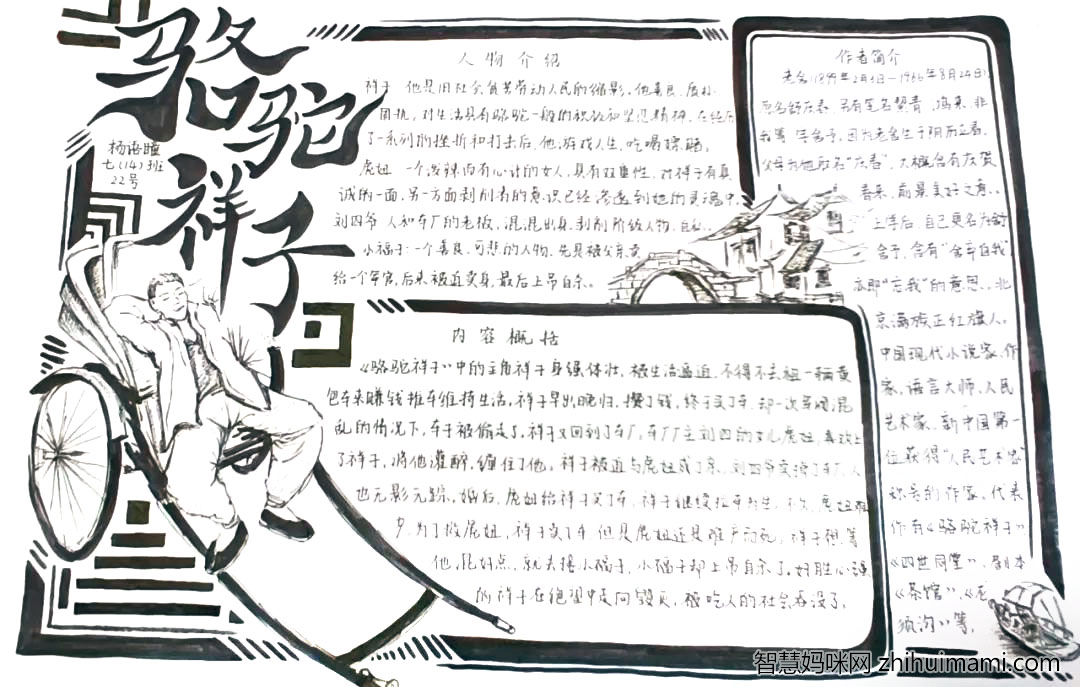 骆驼
祥子
杨语瞳
七(14)班
22号
人物介绍
祥子 他是旧社会贫苦劳动人民的缩影,他善良、质朴
固执,对生活具有骆驼一般的积极和坚忍精神,在经历
了一系列的挫折和打击后,他游戏人生,吃喝嫖赌。
虎妞 一个泼辣而有心计的女人,具有双重性,对祥子有真
诚的一面,另一方面剥削者的意识已经渗透到她的灵魂中
刘四爷 人和车厂的老板,混混出身,剥削阶级人物,自私
小福子:一个善良、可悲的人物,先是被父亲卖
给一个军官,后来被迫卖身,最后上吊自杀。
内容概括
《骆驼祥子》中的主角祥子身强体壮,被生活逼迫,不得不去租一辆黄
包车来赚钱推车维持生活,祥子早出晚归,攒了钱,终于买了车,却一次军阀混
乱的情况下,车子被偷走了,祥子又回到了车厂,车厂厂主刘四的女儿虎妞,喜欢上
了祥子,将他灌醉,缠住了他。祥子被迫与虎妞成了亲,刘四爷卖掉了车厂,人
也无影无踪,婚后,虎妞给祥子买了车,祥子继续拉车为生,不久,虎妞难
为了救虎妞,祥子卖了车,但是虎妞还是难产而死,祥子想等
他混好点,就去接小福子,小福子却上吊自杀了,好胜心强
的祥子在绝望中走向毁灭,被吃人的社会吞没了。
作者简介
老舍(1899年2月3日-1966年8月24日),
原名舒庆春,另有笔名絜青、鸿来、非
我等,字舍予,因为老舍生于阴历立春,
父母为他取名"庆春",大概含有庆贺
春来,前景美好之意。
上学后,自己更名为舒
舍予,含有"舍弃自我",
亦即"忘我"的意思。北
京满族正红旗人。
中国现代小说家、作
家,语言大师、人民
艺术家,新中国第一
位获得"人民艺术家"
称号的作家。代表
作有《骆驼祥子》
《四世同堂》、剧本
《茶馆》、《龙
须沟》等。
智慧妈咪网 zhihuimami.com